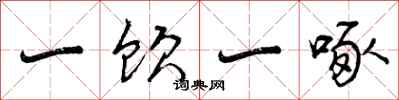 一饮一啄
词典网